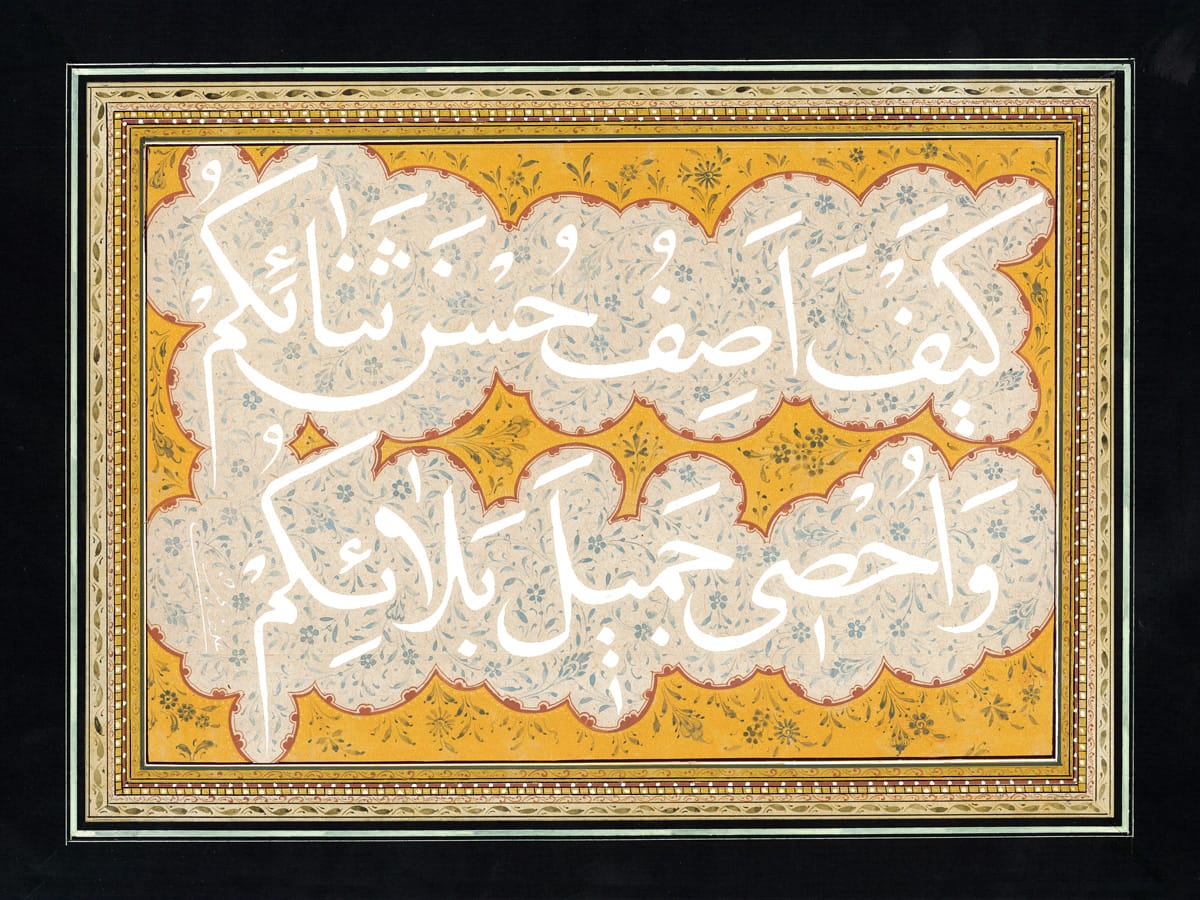 كَيْفَ اَصِفُ حُسْنَ ثَنٰائِكُمْ
وَ اُحْصي جَميلَ بَلاٰئِكُمْ